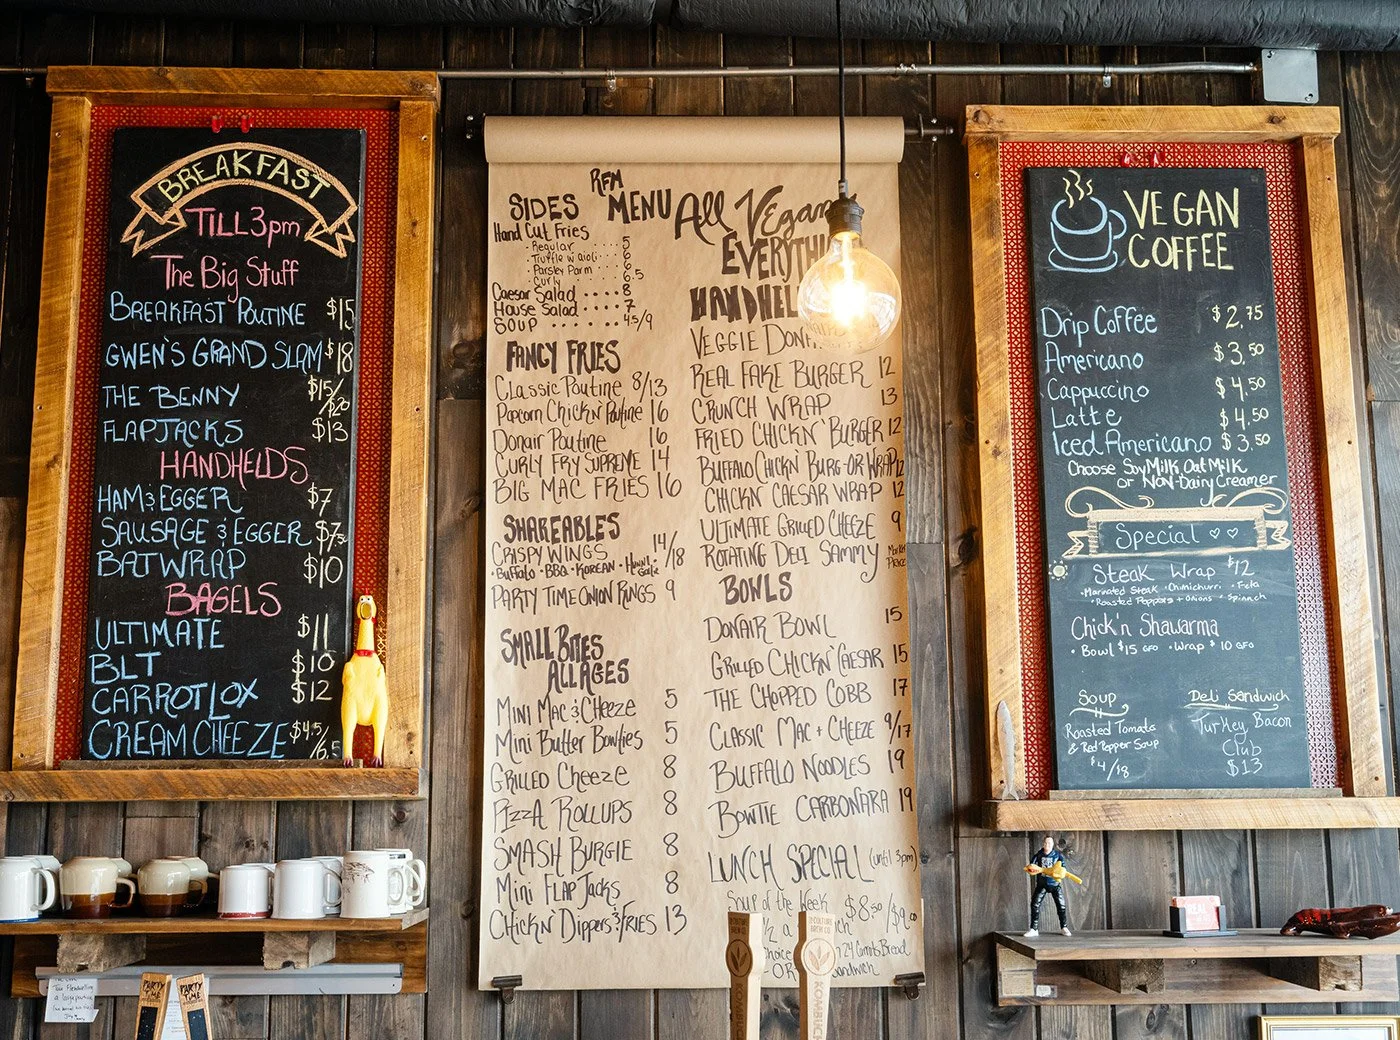 BREAKFAST
TILL 3pm
The Big Stuff
BREAKFAST POUTINE $15
GWEN'S GRAND SLAM $18
THE BENNY $15/$20
FLAPJACKS $13
HANDHELDS
HAM & EGGER $7
SAUSAGE & EGGER $7.50
BATWRAP $10
BAGELS
ULTIMATE $11
BLT $10
CARROT LOX $12
CREAM CHEEZE $4.5/6.5
RFM
MENU
All Vegan
EVERYTHI
SIDES
Hand Cut Fries
- Regular .... 5
- Truffle w aioli .. 6
- Parsley Parm .. 6
- Curly ... 6.5
Caesar Salad .... 8
House Salad .... 7
SOUP ..... 4.5/9
FANCY FRIES
Classic Poutine 8/13
Popcorn Chick'n Poutine 16
Donair Poutine 16
CURLY FRY SUPREME 14
BIG MAC FRIES 16
SHAREABLES
CRISPY WINGS 14/18
• Buffalo • BBQ • KOREAN • Hunni Garlic
PARTY TIME ONION RINGS 9
SMALL BITES
ALL AGES
MINI MAC & CHEEZE 5
Mini Butter Bowties 5
GRILLED CHEEZE 8
PIZZA ROLLUPS 8
SMASH BURGIE 8
Mini FLAP JACKS 8
CHICK'N DIPPERS & FRIES 13
HANDHEL
VEGGIE DONA
REAL FAKE BURGER 12
CRUNCH WRAP 13
FRIED CHICK'N BURGER 12
BUFFALO CHICK'N BURG-OR WRAP 12
CHICK'N CAESAR WRAP 12
ULTIMATE GRILLED CHEEZE 9
ROTATING DELI SAMMY Market Price
BOWLS
DONAIR BOWL 15
GRILLED CHICK'N CAESAR 15
THE CHOPPED COBB 17
CLASSIC MAC + CHEEZE 9/17
BUFFALO NOODLES 19
BOWTIE CARBONARA 19
LUNCH SPECIAL (until 3pm)
Soup of the Week $8.50/$9.00
1/2 a
OR
KOMBUC
PARTY TIME
PARTY TIME
VEGAN
COFFEE
Drip Coffee $2.75
Americano $3.50
Cappuccino $4.50
Latte $4.50
Iced Americano $3.50
Choose Soy Milk, Oat Milk
or Non-Dairy Creamer
Special
Steak Wrap $12
• Marinated Steak • Chimichurri • Feta
• Roasted Peppers + Onions • Spinach
Chick'n Shawarma
• Bowl $15 GFO • Wrap $10 GFO
Soup
Roasted Tomato
& Red Pepper Soup
$4/$8
Deli Sandwich
Turkey Bacon
Club
$13